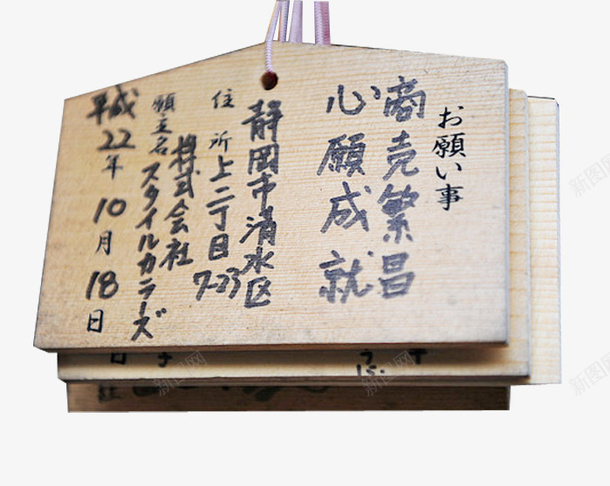 お願い事
商売繁昌
心願成就
静岡市清水区
住所 上二丁目
7-23
株式会社
願主名 スタイルカラーズ
平成22年10月18日